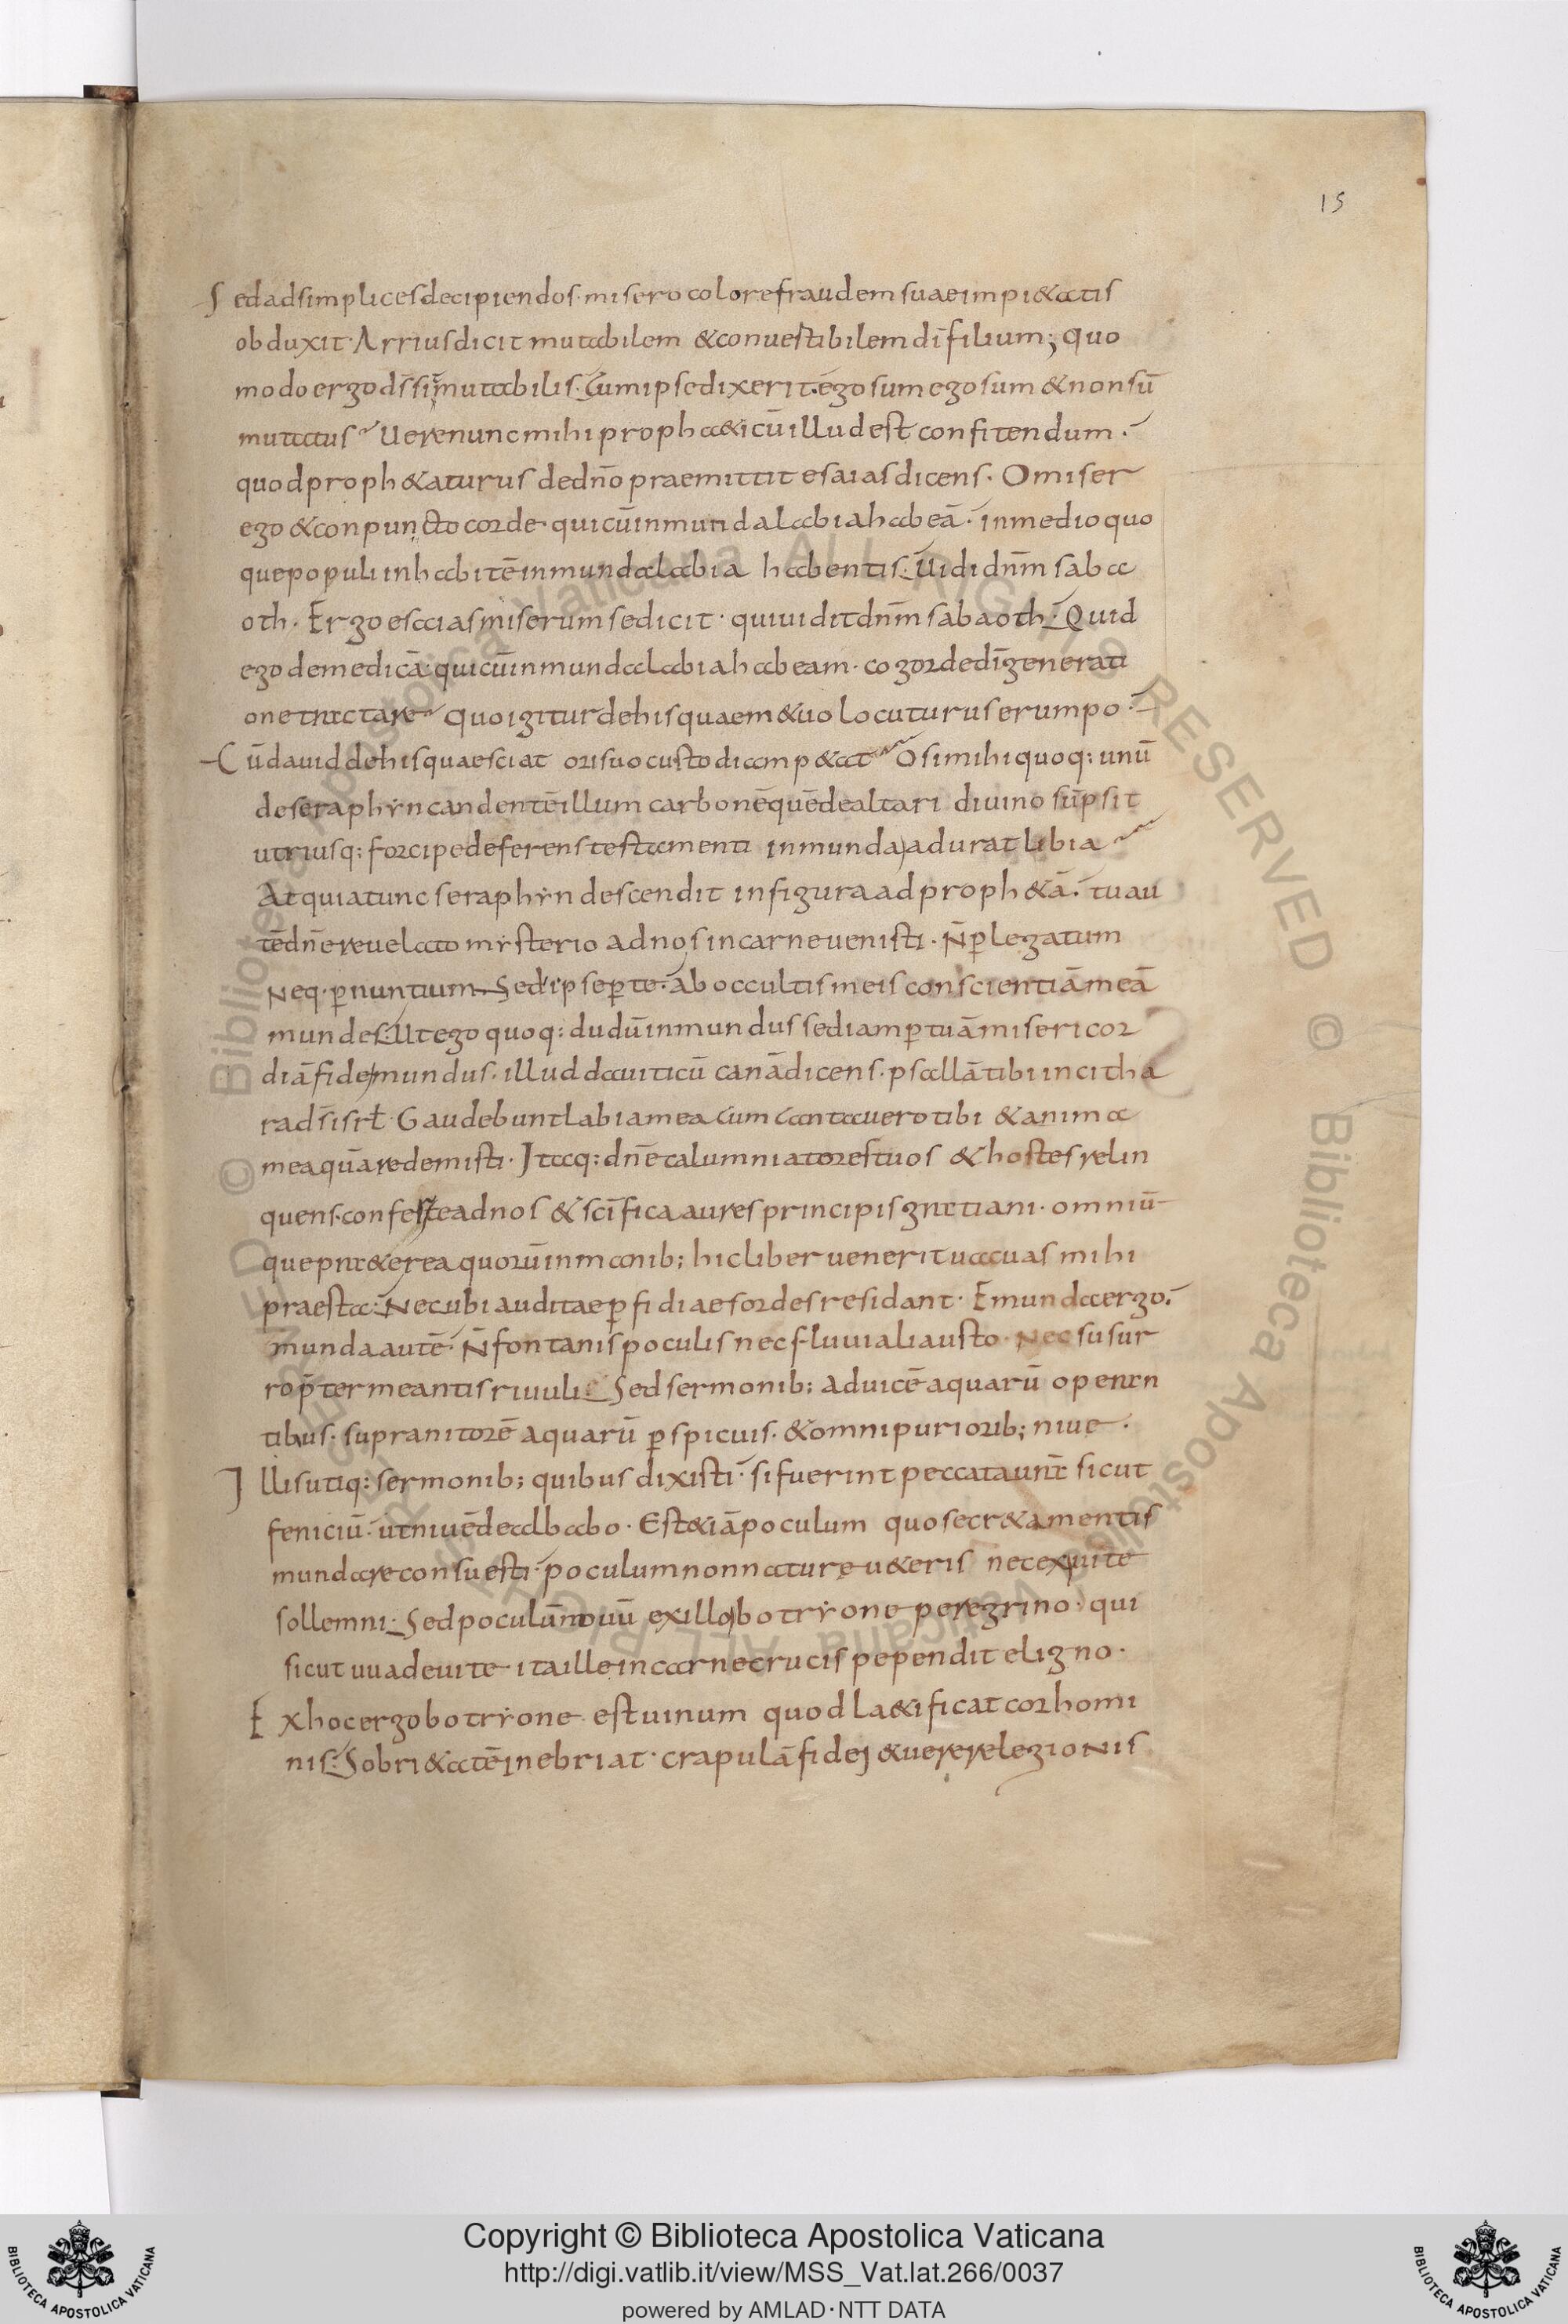 15
Sed ad simplices decipiendos· misero colore fraudem suae impi&atis
obduxit· Arrius dicit mutabilem &conuestibilem dī filium; Quo
modo ergo ds̄ mutabilis· Cum ipse dixerit· ego sum ego sum & non sū
mutatus· Uere nunc mihi proph&icū illud est confitendum·
quod proph&aturus de dn̄o praemittit esaias dicens· O miser
ego & conpuncto corde· qui cū inmunda labia habeā· in medio quo
que populi inhabitē inmunda labia habentis· Uidi dn̄m saba
oth· Ergo esaias miserum se dicit· qui uidit dn̄m sabaoth· Quid
ego de me dicā· qui cū inmunda labia habeam· cogor de dī generati
one tractare· Quo igitur de his quae m&uo locuturus erumpo·
Cū dauid de his quae sciat ori suo custodiam p&at· O si mihi quoq: unū
de seraphyn candentē illum carbonē quē de altari diuino sūpsit
utriusq: forcipe deferens testamenti inmunda adurat libia
At quia tunc seraphyn descendit in figura ad proph&ā· tu au
tē dn̄e reuelato mysterio ad nos in carne uenisti· N̄ p̱ legatum
Neq· p̱ nuntium· Sed ipse p̱ te· ab occultis meis conscientiā meā
mundes· Ut ego quoq: dudū inmundus sed iam p̱ tuā misericor
diā fide mundus· illud dauiticū canā dicens· psallā tibi in citha
ra ds̄ isrł· Gaudebunt labia mea cum cantauero tibi & anima
mea quā redemisti· Itaq: dn̄e calumniatores tuos & hostes relin
quens· confeste ad nos & sc̄ifica aures principis gratiani· omniū
que pra&erea quorū in manib; hic liber uenerit uacuas mihi
praesta· Necubi auditae p̱fidiae sordes residant· Emunda ergo·
munda autē· N̄ fontanis poculis nec fluuiali austo· Nec susur
ro p̄termeantis riuuli· Sed sermonib; ad uicē aquarū operan
tibus· supra nitorē aquarū p̱spicuis· & omni puriorib; niue·
Illis utiq: sermonib; quibus dixisti· si fuerint peccata urn̄t sicut
feniciū· ut niuē dealbabo· Est &iā poculum quo secr&a mentis
mundare consuesti· poculum non nature u&eris nec ex uite
sollemni· Sed poculū nouū ex illo botryone peregrino· qui
sicut uua de uite· ita ille in carne crucis pependit e ligno·
Ex hoc ergo botryone est uinum quod la&ificat cor homi
nis· Sobri&atē inebriat· crapulā fidei & uere relegionis
Copyright © Biblioteca Apostolica Vaticana
http://digi.vatlib.it/view/MSS_Vat.lat.266/0037
powered by AMLAD·NTT DATA